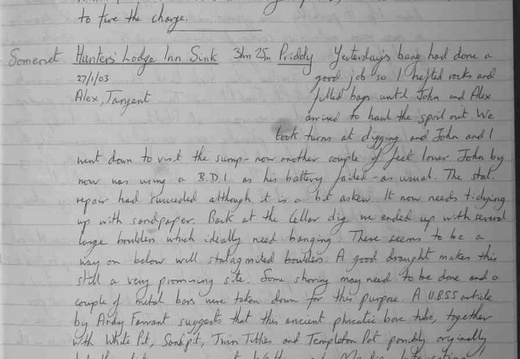 to fire the charge.
Somerset Hunters' Lodge Inn Sink 3hr 25m Priddy Yesterday's bang had done a
27/1/03 good job so I hefted rocks and
Alex, Tangent filled bags until John and Alex
arrived to haul the spoil out. We
took turns at digging and John and I
went down to visit the sump - now another couple of feet lower. John by
now was using a B.D.I. as his battery failed - as usual. The stal
repair had succeeded although it is a bit askew. It now needs tidying
up with sandpaper. Back at the Cellar dig we ended up with several
large boulders which ideally need banging. There seems to be a
way on below well stalagmited boulders. A good draught makes this
still a very promising site. Some shoring may need to be done and a
couple of metal bars were taken down for this purpose. A U.B.S.S article
by Andy Farrant suggests that this ancient phreatic bore tube, together
with White Pit, Sandpit, Twin Titties and Templeton Pot possibly originally